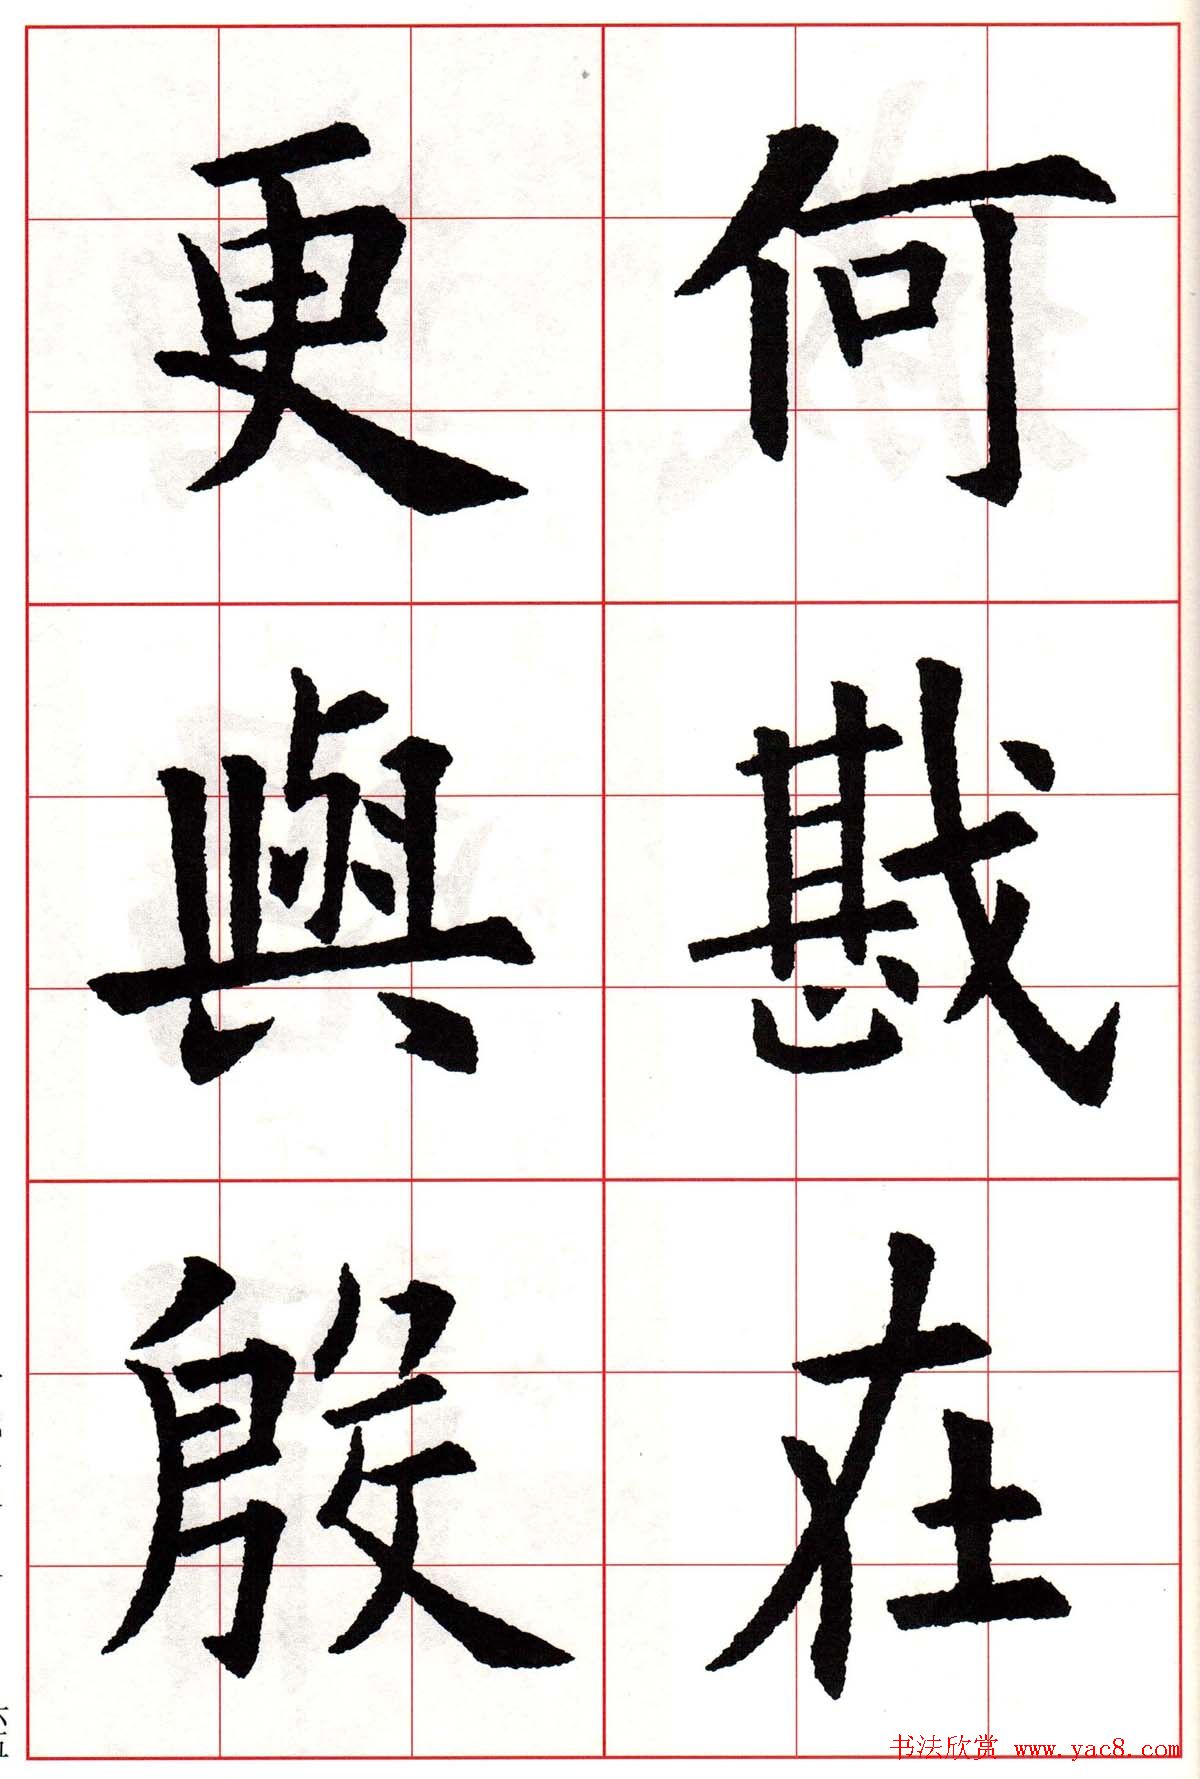 何戡在
更與殷
书法欣赏 www.yac8.com